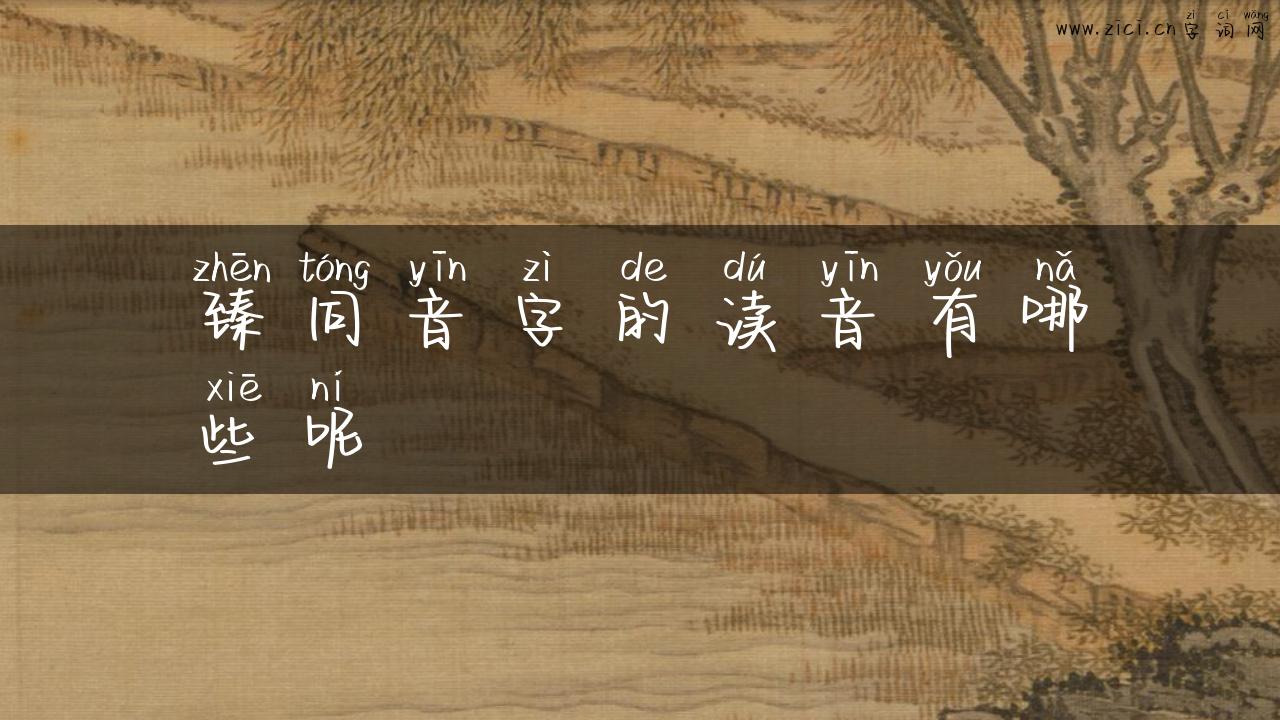 zì cí wǎng
www.zici.cn字词网
zhēn tóng yīn zì de dú yīn yǒu nǎ
臻同音字的读音有哪
xiē ní
些呢